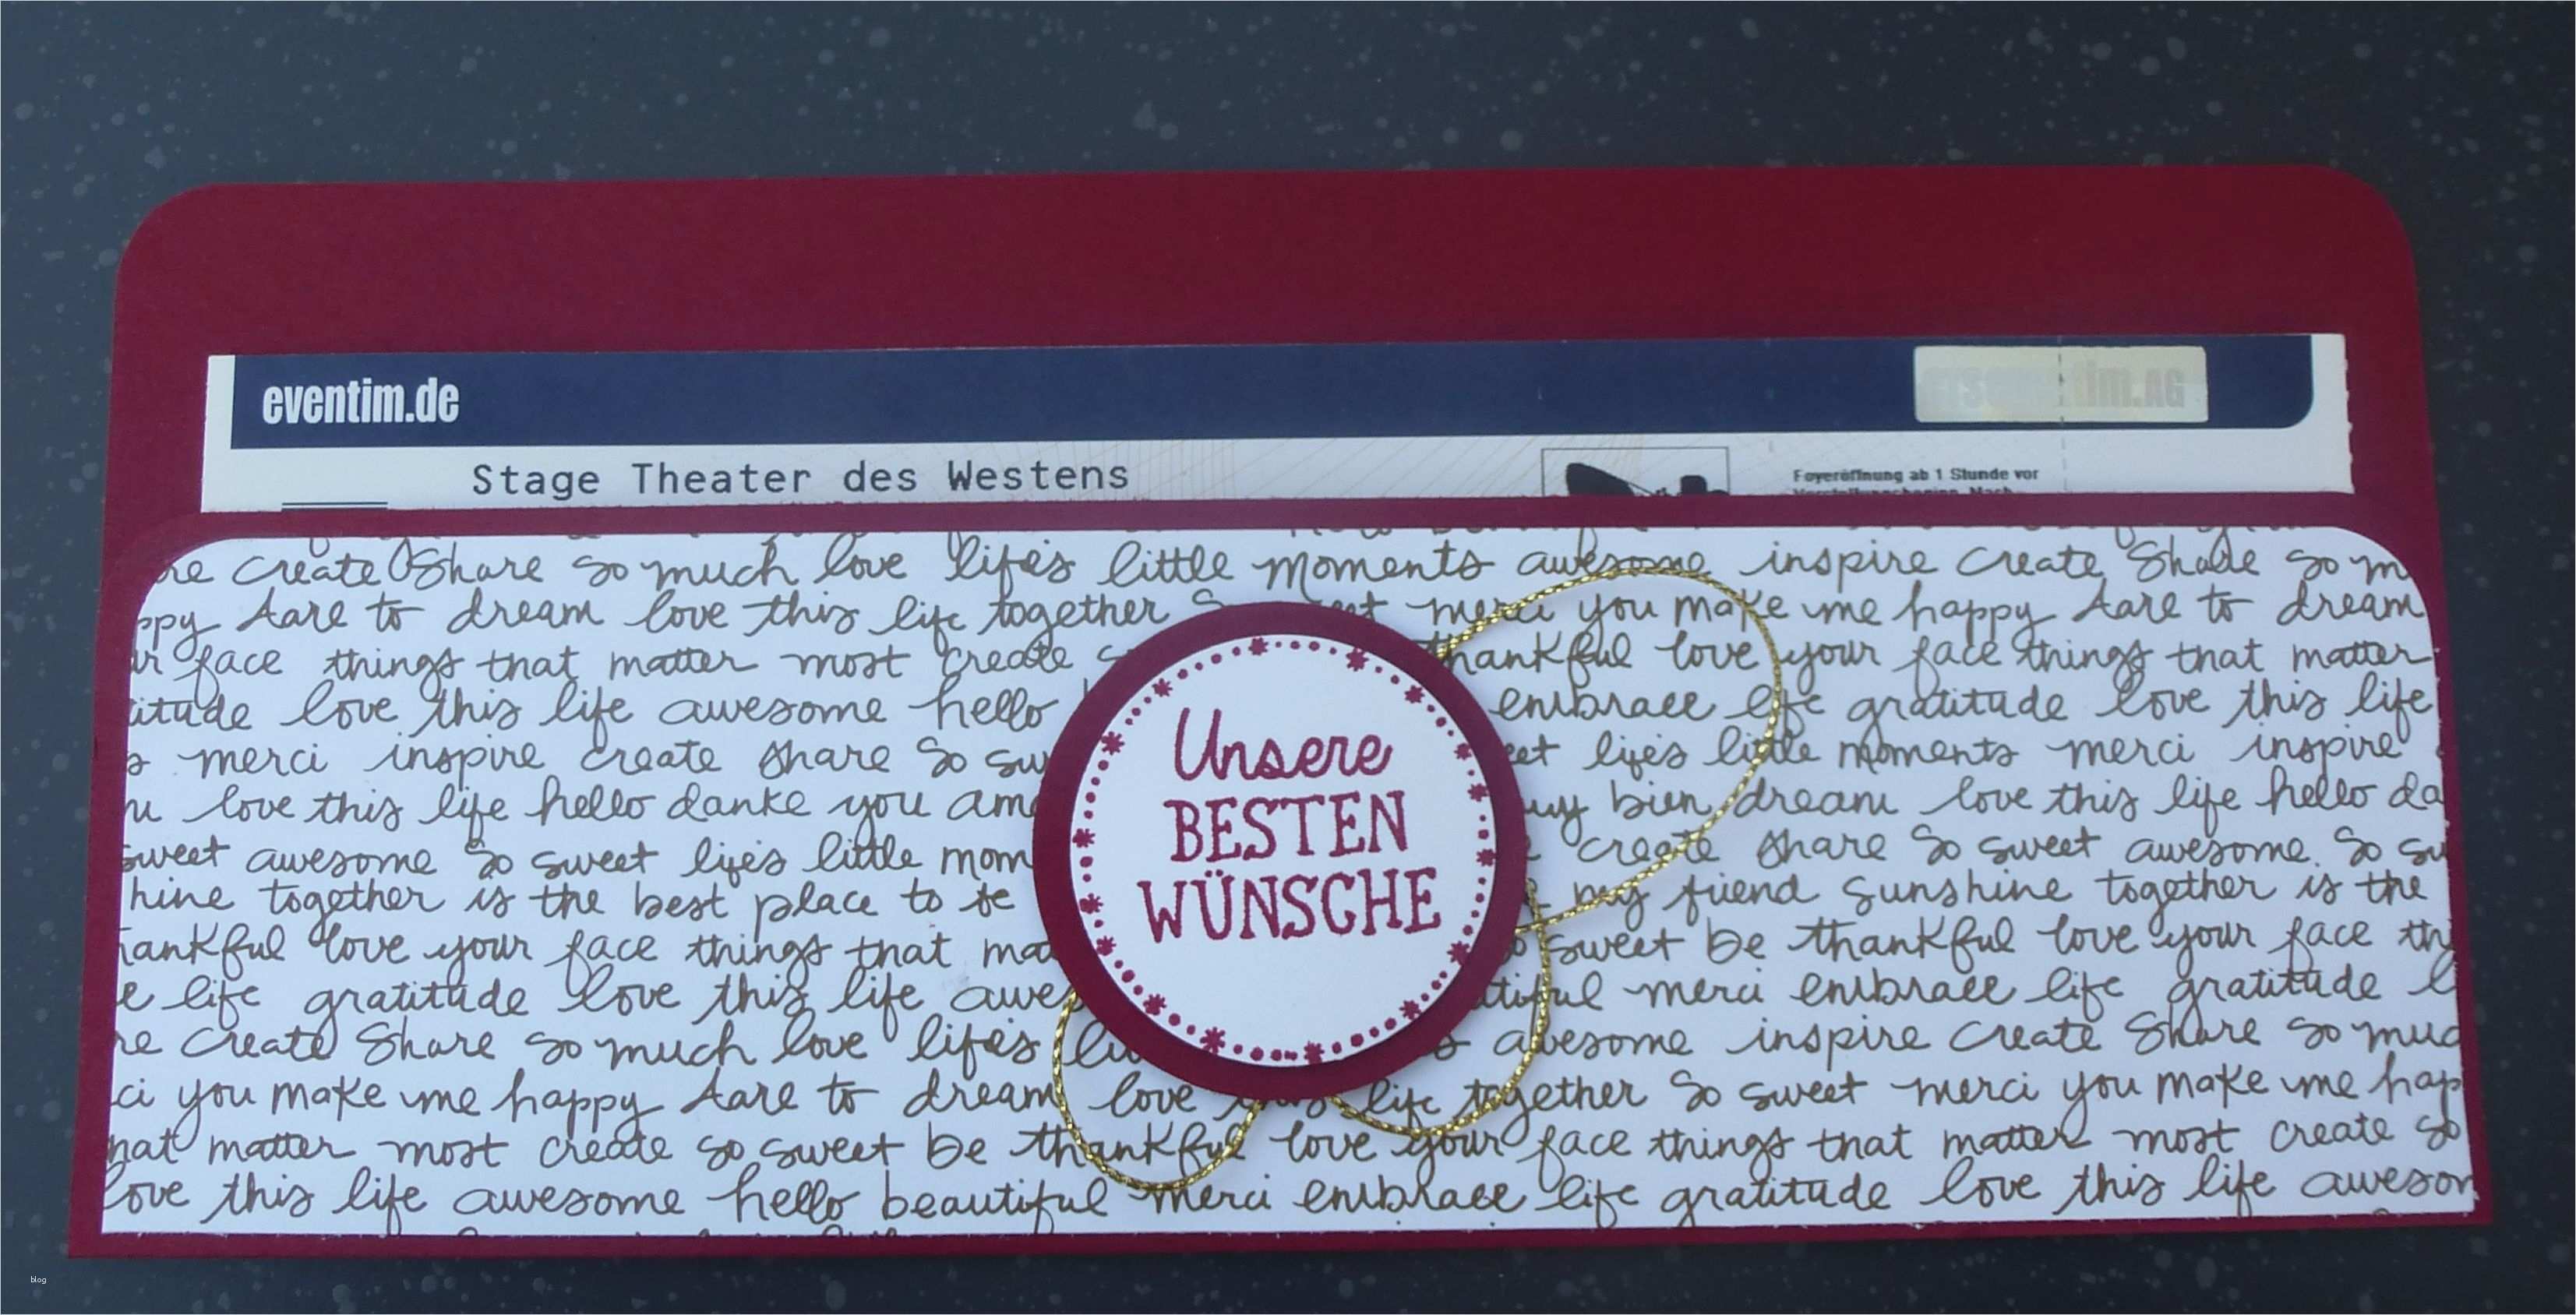 eventim.de
tim.AG
Stage Theater des Westens
Foyeröffnung ab 1 Stunde vor
create Share so much love life's little moments awesome inspire create Share so m
ppy dare to dream love this life together merci you make me happy dare to dream
ur face things that matter most create thankful love your face things that matter
itude love this life awesome hello embrace life gratitude love this life
s merci inspire create share so sw eet life's little moments merci inspire
u love this life hello danke you ama bien dream love this life hello da
sweet awesome so sweet life's little mom create share so sweet awesome so sw
hine together is the best place to be my friend sunshine together is the
hankful love your face things that mat so sweet be thankful love your face thi
e life gratitude love this life awes utiful merci embrace life gratitude l
re create Share so much love life's li s awesome inspire create Share so muc
ci you make me happy dare to dream love this life together so sweet merci you make me hap
hat matter most create so sweet be thankful love your face things that matter most create so
love this life awesome hello beautiful merci embrace life gratitude love this life awesom
Unsere
BESTEN
WÜNSCHE
blog